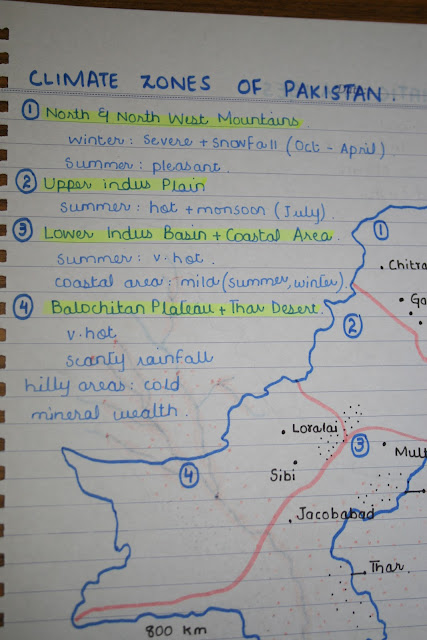 CLIMATE ZONES OF PAKISTAN.
① North & North West Mountains.
winter: severe + snowfall (Oct - April).
summer: pleasant.
② Upper indus Plain
summer: hot + monsoon (July).
③ Lower Indus Basin + Coastal Area.
summer: v. hot.
coastal area: mild (summer, winter).
④ Balochitan Plateau + Thar Desert.
v. hot
scanty rainfall
hilly areas: cold
mineral wealth.
①
Chitra
Ga
②
Loralai
③
Mul
Sibi
④
Jacobabad
Thar.
800 km